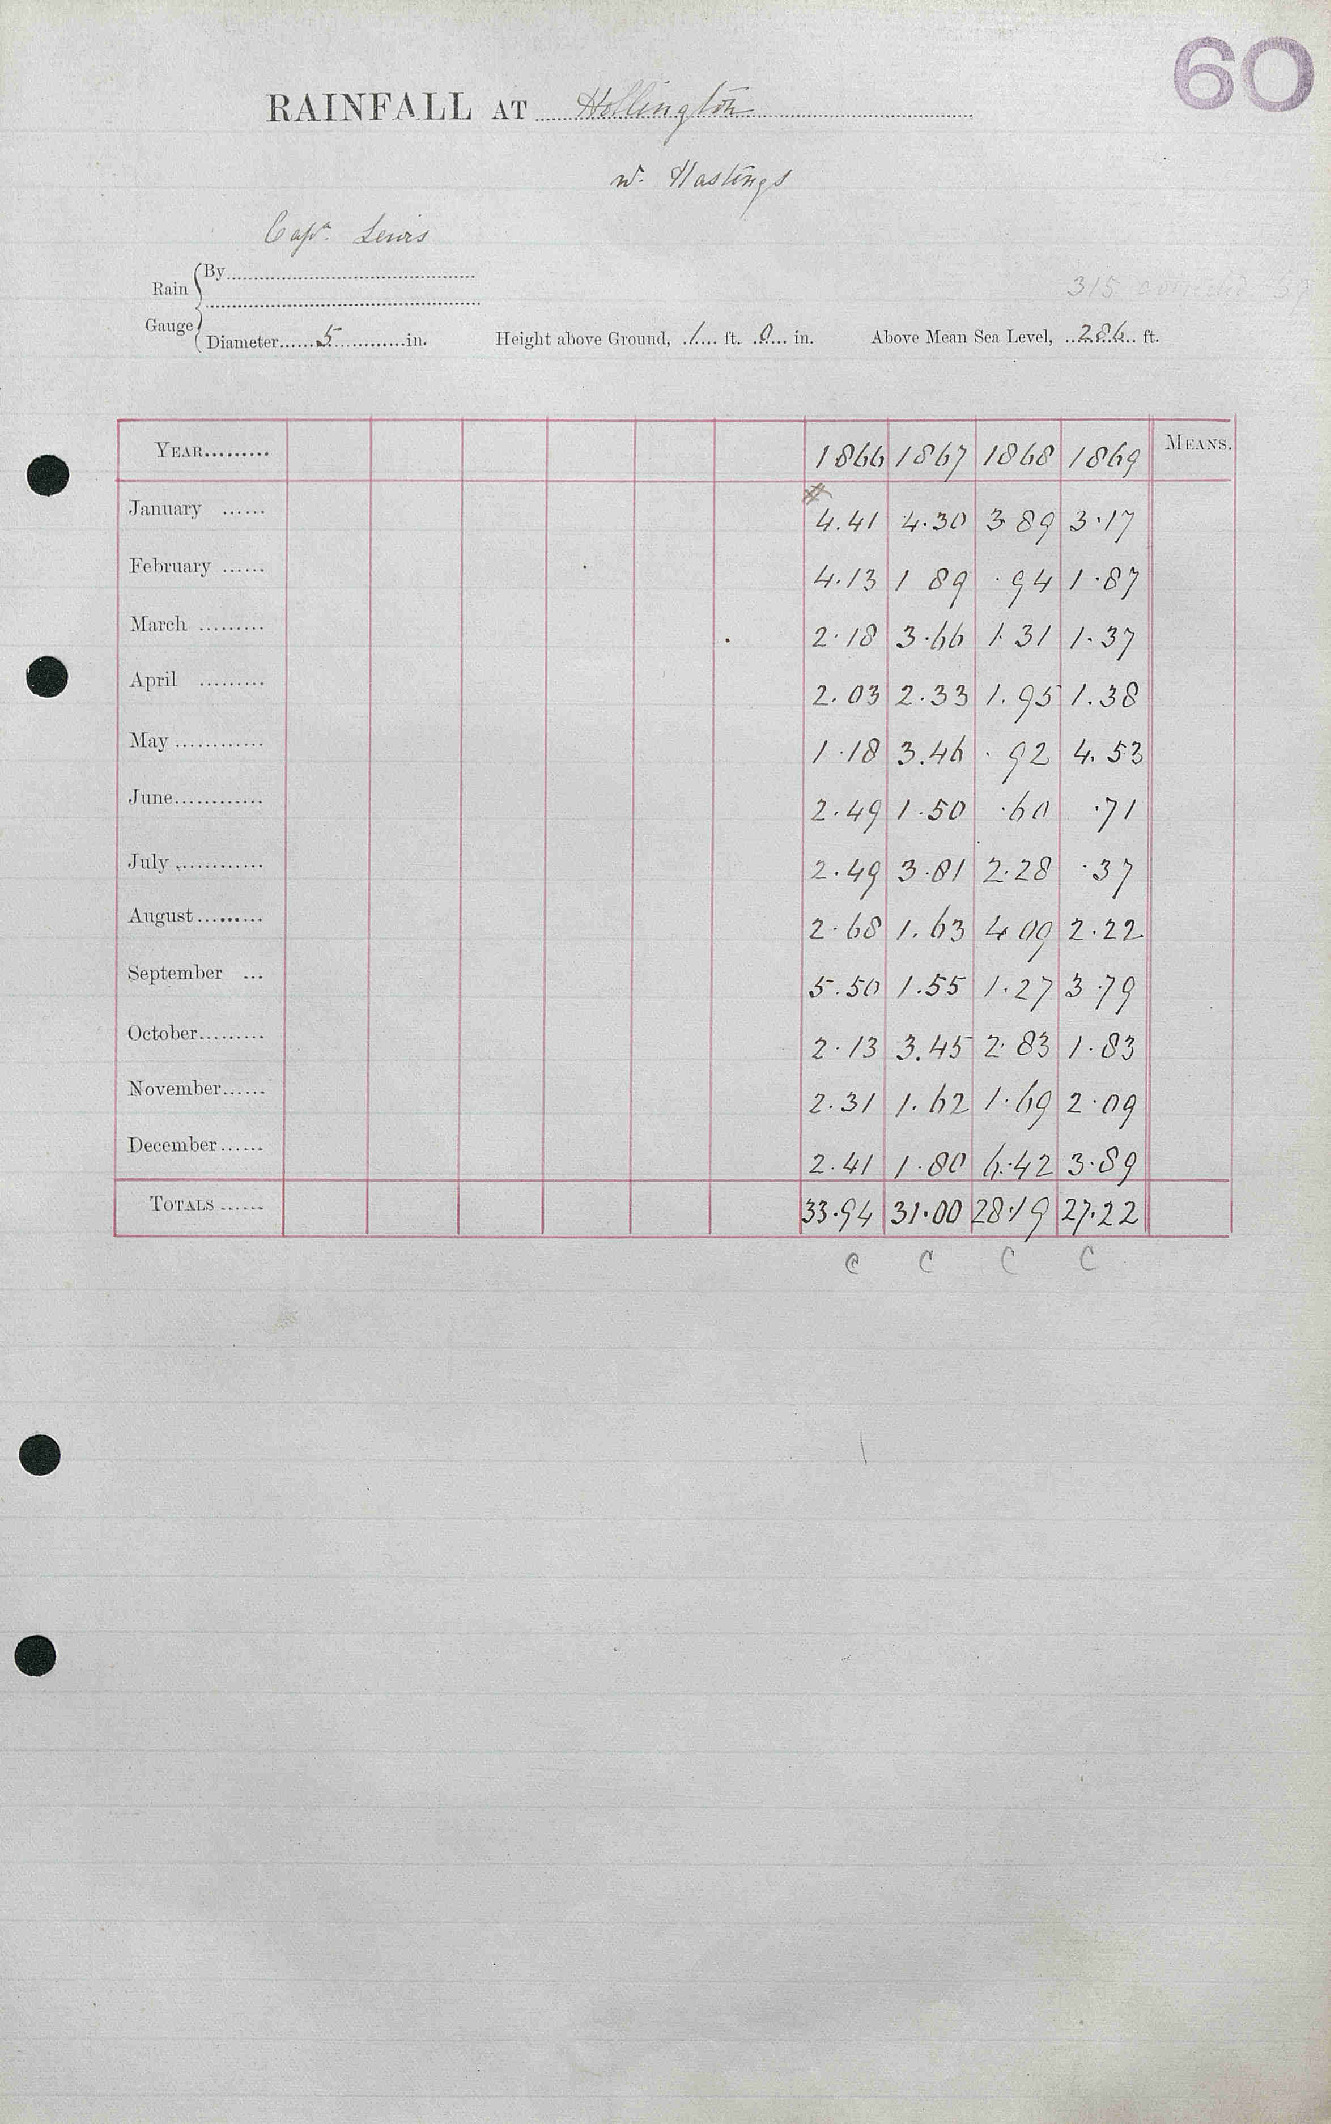 60
RAINFALL AT Hollington
nr. Hastings
Capt. Lewis
Rain Gauge { By
Diameter 5 in. Height above Ground, 1 ft. 0 in. Above Mean Sea Level, 286 ft.
315
YEAR 1866 1867 1868 1869 MEANS.
January 4.41 4.30 3.89 3.17
February 4.13 1 89 .94 1.87
March 2.18 3.66 1.31 1.37
April 2.03 2.33 1.95 1.38
May 1.18 3.46 .92 4.53
June 2.49 1.50 .60 .71
July 2.49 3.81 2.28 .37
August 2.68 1.63 4 09 2.22
September 5.50 1.55 1.27 3.79
October 2.13 3.45 2.83 1.83
November 2.31 1.62 1.69 2.09
December 2.41 1.80 6.42 3.89
TOTALS 33.94 31.00 28.19 27.22
C C C C